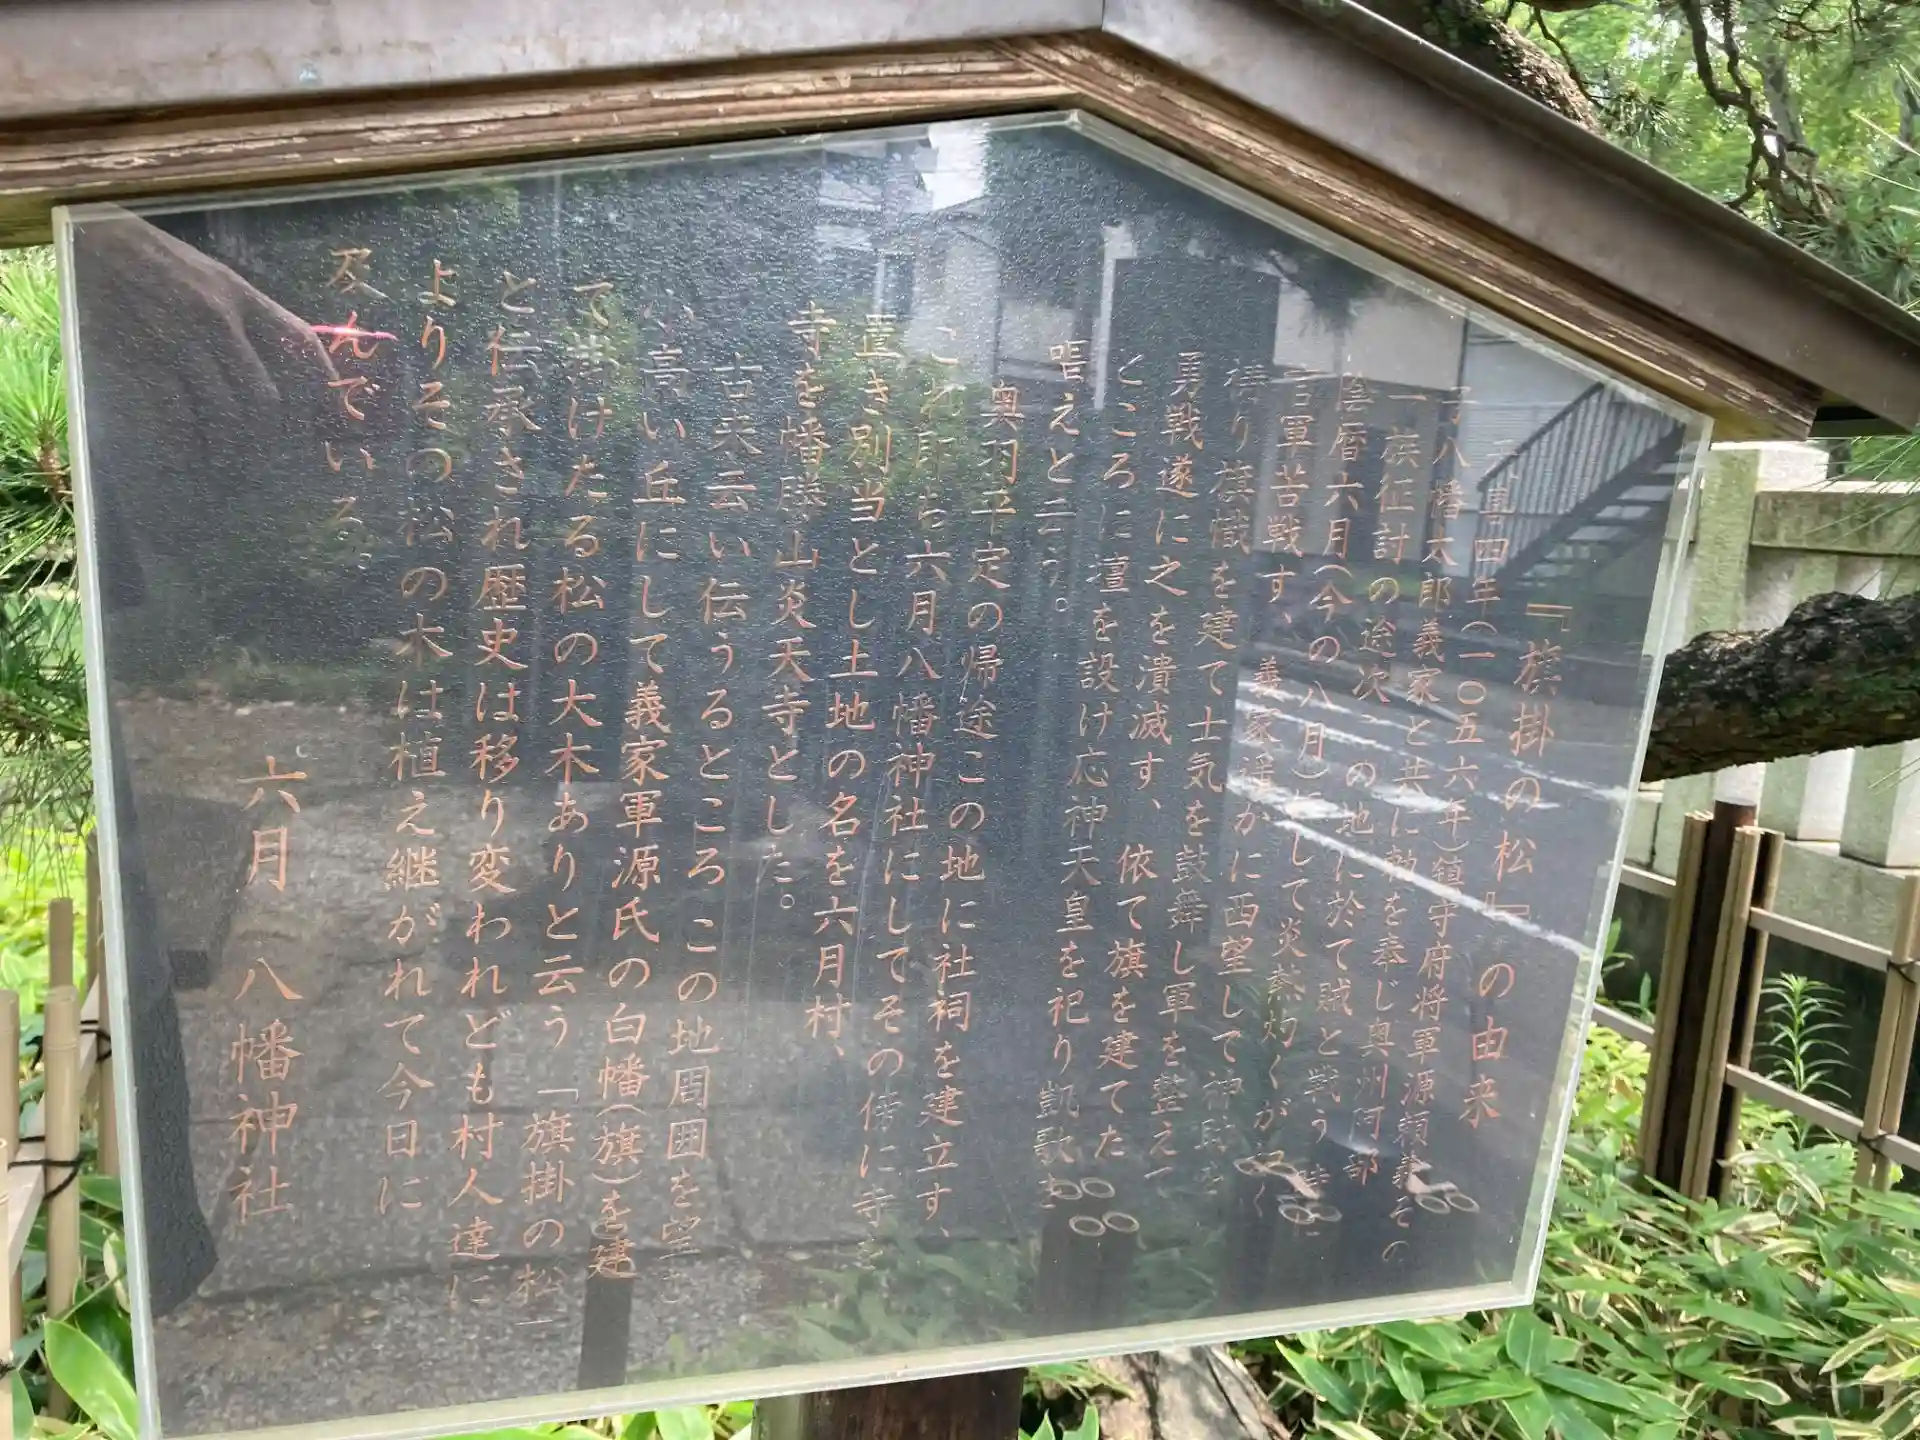 『旗掛の松』の由来
天喜四年（一〇五六年）鎮守府将軍源頼義その
子八幡太郎義家と共に勅を奉じ奥州阿部
一族征討の途次、この地に於て賊と戦う 時に
陰暦六月（今の八月）にして炎熱灼くが如く
官軍苦戦す、義家遥かに西望して神助を
祷り旗幟を建て士気を鼓舞し軍を整えて
勇戦遂に之を潰滅す、依て旗を建てた
ところに壇を設け応神天皇を祀り凱歌を
唱えと云う。
奥羽平定の帰途この地に社祠を建立す、
これ即ち六月八幡神社にしてその傍に寺を
置き別当とし土地の名を六月村、
寺を幡勝山炎天寺とした。
古来云い伝うるところこの地周囲を望む
小高い丘にして義家軍源氏の白幡（旗）を建
て掛けたる松の大木ありと云う「旗掛の松」
と伝承され歴史は移り変われども村人達に
よりその松の木は植え継がれて今日に
及んでいる。
六月八幡神社